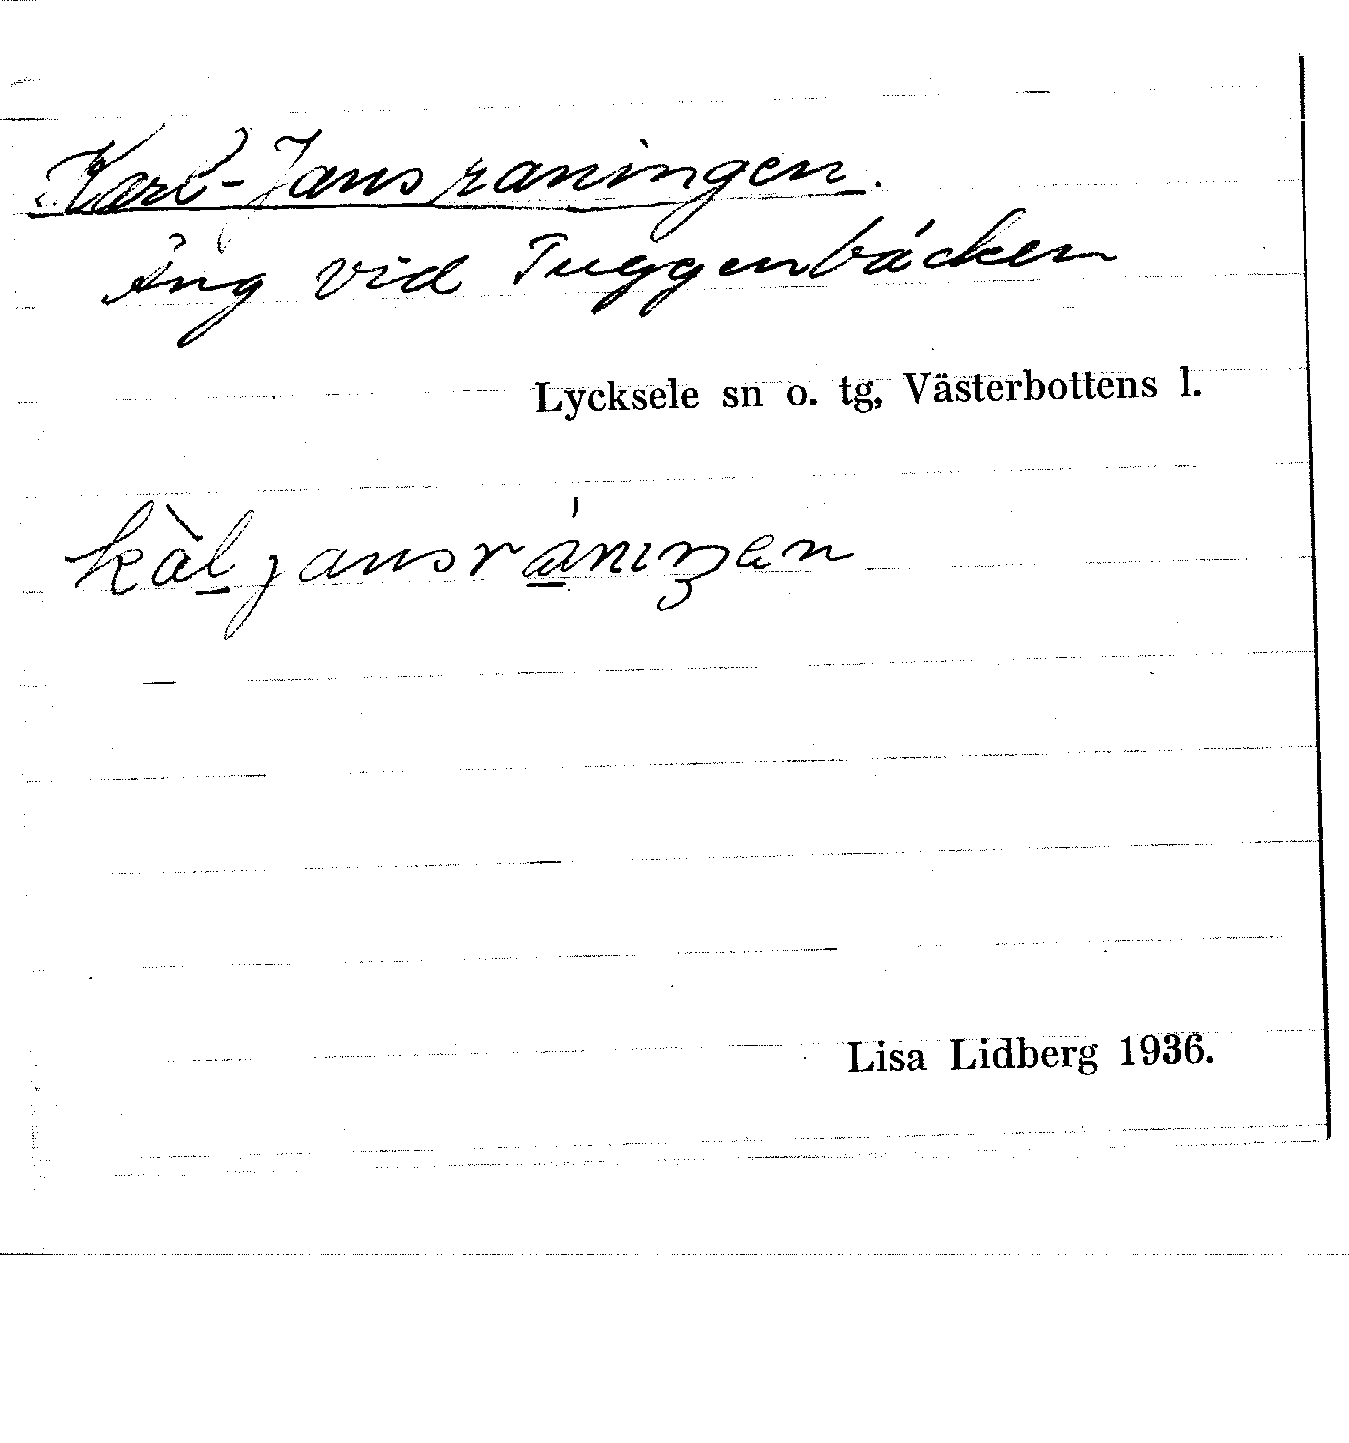 Karl-Jansraningen.
Äng vid Tuggenbäcken
Lycksele sn o. tg, Västerbottens l.
kàl̲jansrá̲niŋen
Lisa Lidberg 1936.